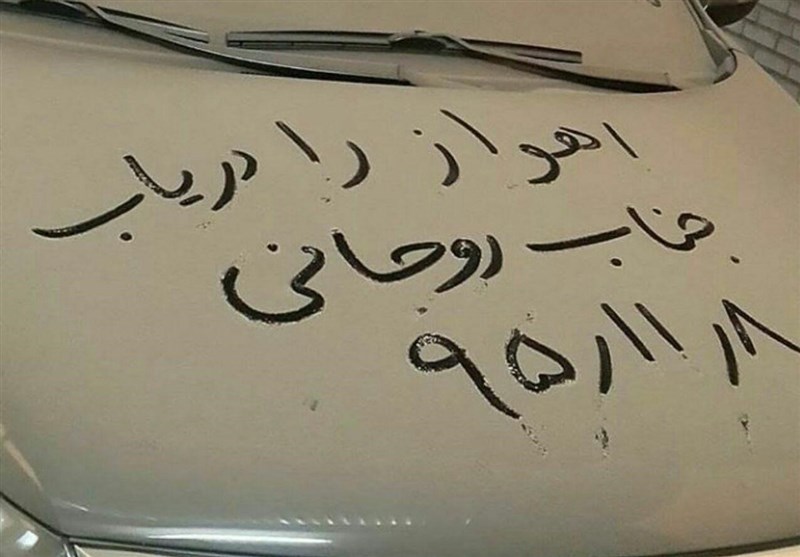 اهواز را دریاب
جناب روحانی
۹۵/۱۱/۸